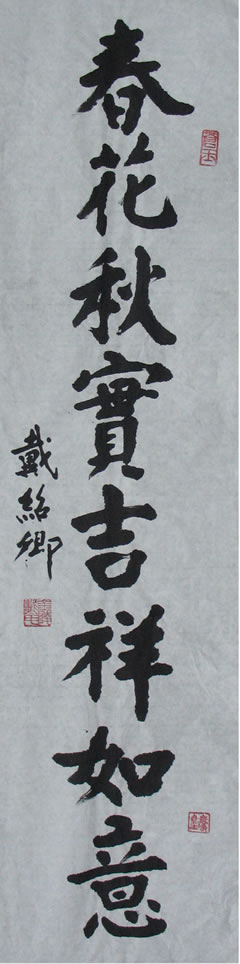 春花秋實吉祥如意
戴紹卿